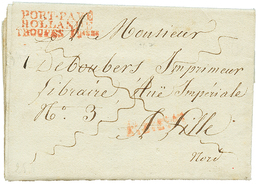 PORT-PAYÉ
HOLLANDE
A Monsieur
Deboubers Imprimeur
Libraire Rüe Impériale
N.o 3. A Lille
Nord